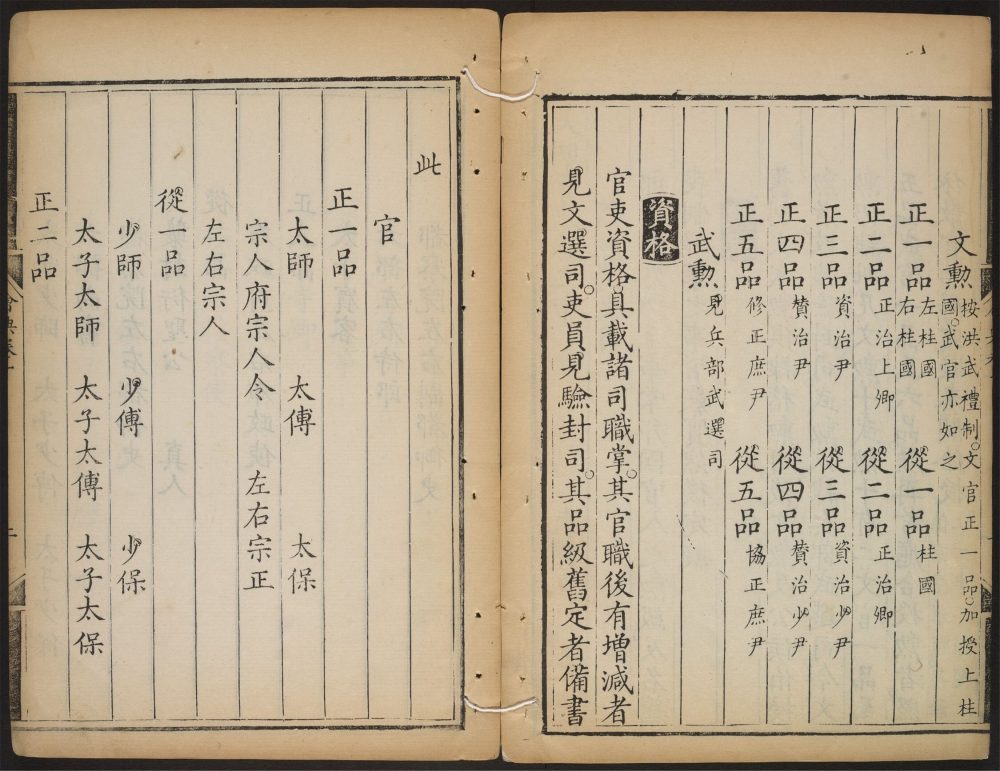 文勳 按洪武禮制。文官正一品。加授上柱
國。武官亦如之
正一品 左柱國 右柱國 從一品 柱國
正二品 正治上卿 從二品 正治卿
正三品 資治尹 從三品 資治少尹
正四品 賛治尹 從四品 賛治少尹
正五品 修正庶尹 從五品 協正庶尹
武勳 見兵部武選司
資格
官吏資格具載諸司職掌。其官職後有增減者
見文選司。吏員見驗封司。其品級舊定者備書
此
官
正一品
太師 太傅 太保
宗人府宗人令 左右宗正
左右宗人
從一品
少師 少傅 少保
太子太師 太子太傅 太子太保
正二品